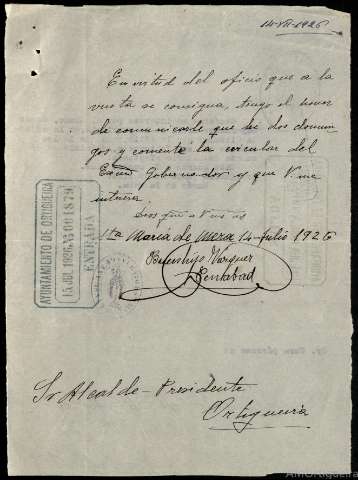 14-VII-1926
En virtud del oficio que a la
vuelta se consigna, tengo el honor
de comunicarle que leí dos domin
gos y comenté la circular del
Excmo Gobernador y que V. me
Dios gue a V ms as
Sta María de Mera 14-julio 1926
Vazquez
AYUNTAMIENTO DE ORTIGUEIRA
15 JUL 1926
001879
ENTRADA
Sr Alcalde-Presidente
Ortigueira
AMOrtigueira